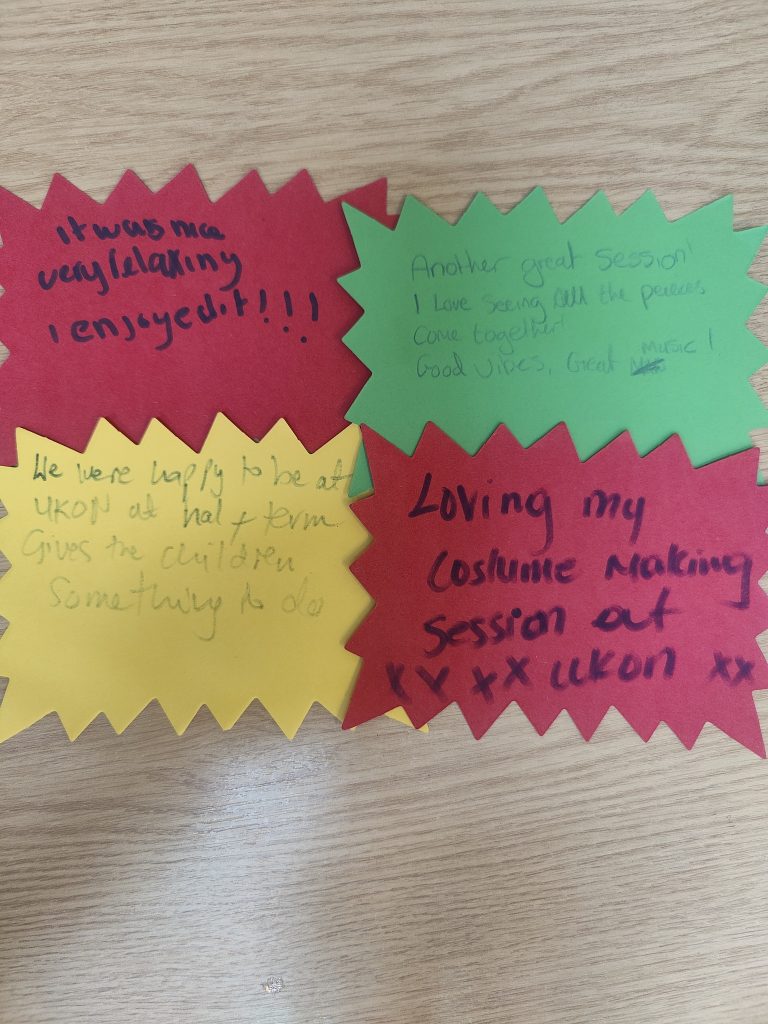 it was nice
very relaxing
i enjoyed it!!!
Another great session!
I Love seeing all the peieces
Come together!
Good vibes, Great Music!
We were happy to be at
UKON at half term
Gives the children
Something to do
Loving my
Costume Making
Session at
XX XX UKON XX